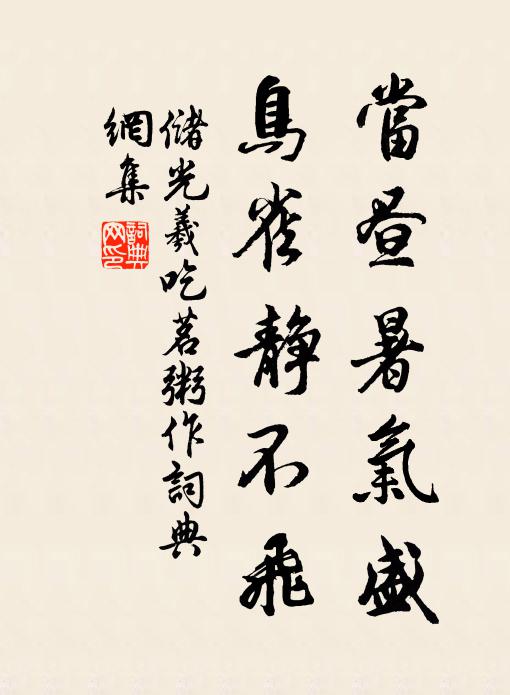 當昼暑氣盛
鳥雀静不飛
儲光羲吃茗粥作詞典
網集
詞典
网印